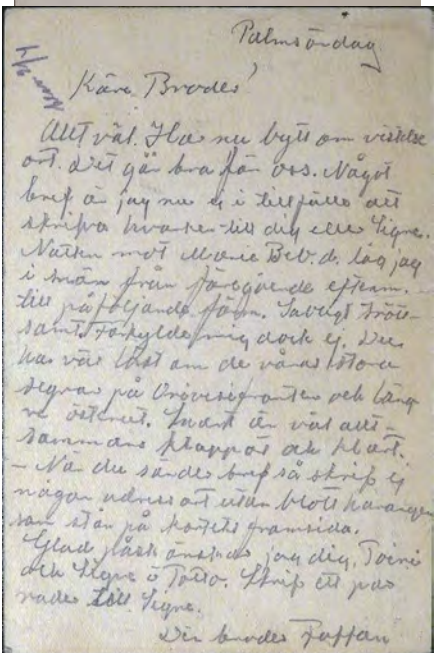 Palmsöndag
Käre Broder!
Allt väl. Har nu bytt om vistelse
ort. Det går bra för oss. Något
bref är jag nu ej i tillfälle att
skrifva hvarken till dig eller Signe.
Natten mot Marie Beb. d. låg jag
i snön från föregående efterm.
till påföljande förm. Savligt trött-
samt. Förkylde mig dock ej. Du
har väl läst om de våras stora
segrar på fronten och läng
re österut. Snart är väl allt-
sammans klappat och klart.
– När du sänder bref så skrif ej
någon adressort utan blott
som står på kortets framsida.
Glad påsk önskar jag dig, Toini
och Signe o Totto. Skrif ett par
rader till Signe.
Din broder Faffan